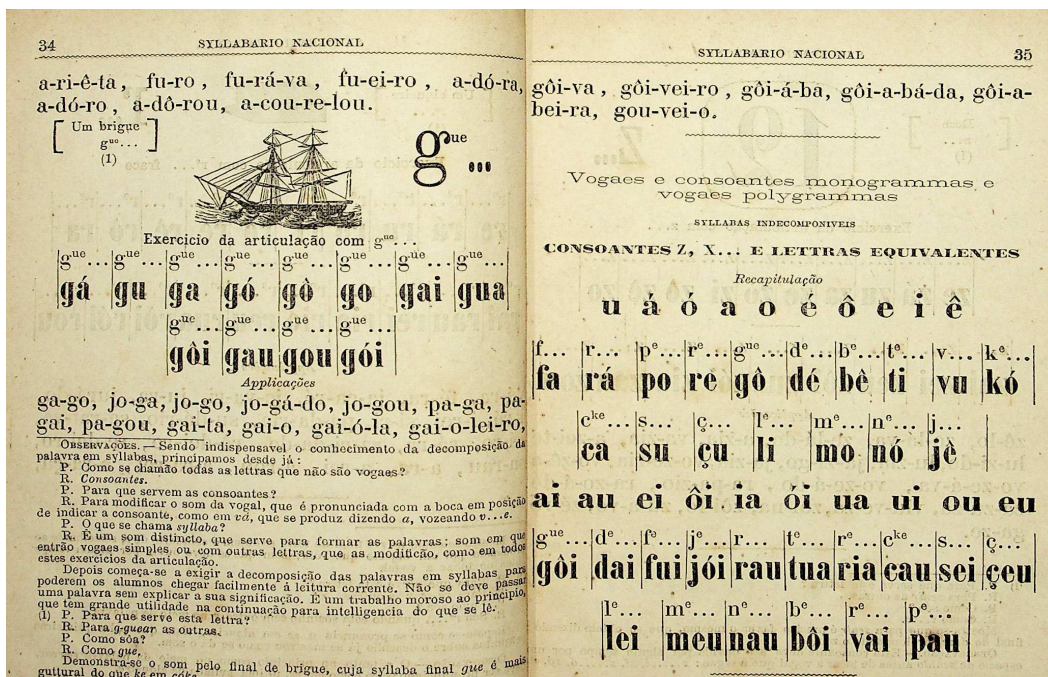 34
SYLLABARIO NACIONAL
a-ri-ê-ta, fu-ro, fu-rá-va, fu-ei-ro, a-dó-ra,
a-dó-ro, a-dô-rou, a-cou-re-lou.
[ Um brigue ]
gue...
(1)
gue...
Exercicio da articulação com gue...
gue... gue... gue... gue... gue... gue... gue... gue...
gá gu ga gó gô go gai gua
gue... gue... gue... gue...
gôi gau gou gói
Applicações
ga-go, jo-ga, jo-go, jo-gá-do, jo-gou, pa-ga, pa-
gai, pa-gou, gai-ta, gai-o, gai-ó-la, gai-o-lei-ro,
OBSERVAÇÕES. — Sendo indispensavel o conhecimento da decomposição da
palavra em syllabas, principamos desde já:
P. Como se chamão todas as lettras que não são vogaes?
R. Consoantes.
P. Para que servem as consoantes?
R. Para modificar o som da vogal, que é pronunciada com a boca em posição
de indicar a consoante, como em vá, que se produz dizendo a, vozeando v...e.
P. O que se chama syllaba?
R. É um som distincto, que serve para formar as palavras; som em que
entrão vogaes simples ou com outras lettras, que as modifição, como em todos
estes exercicios da articulação.
Depois começa-se a exigir a decomposição das palavras em syllabas para
poderem os alumnos chegar facilmente á leitura corrente. Não se deve passar
uma palavra sem explicar a sua significação. É um trabalho moroso ao principio,
que tem grande utilidade na continuação para intelligencia do que se lê.
(1) P. Para que serve esta lettra?
R. Para g-guear as outras.
P. Como sôa?
R. Como gue.
Demonstra-se o som pelo final de brigue, cuja syllaba final gue é mais
guttural do que ke em cóke.
SYLLABARIO NACIONAL
35
gôi-va, gôi-vei-ro, gôi-á-ba, gôi-a-bá-da, gôi-a-
bei-ra, gou-vei-o.
Vogaes e consoantes monogrammas e
vogaes polygrammas
SYLLABAS INDECOMPONIVEIS
CONSOANTES Z, X... E LETTRAS EQUIVALENTES
Recapitulação
u á ó a o é ô e i ê
f... r... pe... re... gue... de... be... te... v... ke...
fa rá po re gô dé bê ti vu kó
cke... s... ç... le... me... ne... j...
ca su çu li mo nó jè
ai au ei ôi ia ói ua ui ou eu
gue... de... fe... je... r... te... re... cke... s... ç...
gôi dai fui jói rau tua ria cau sei çeu
le... me... ne... be... re... pe...
lei meu nau bôi vai pau